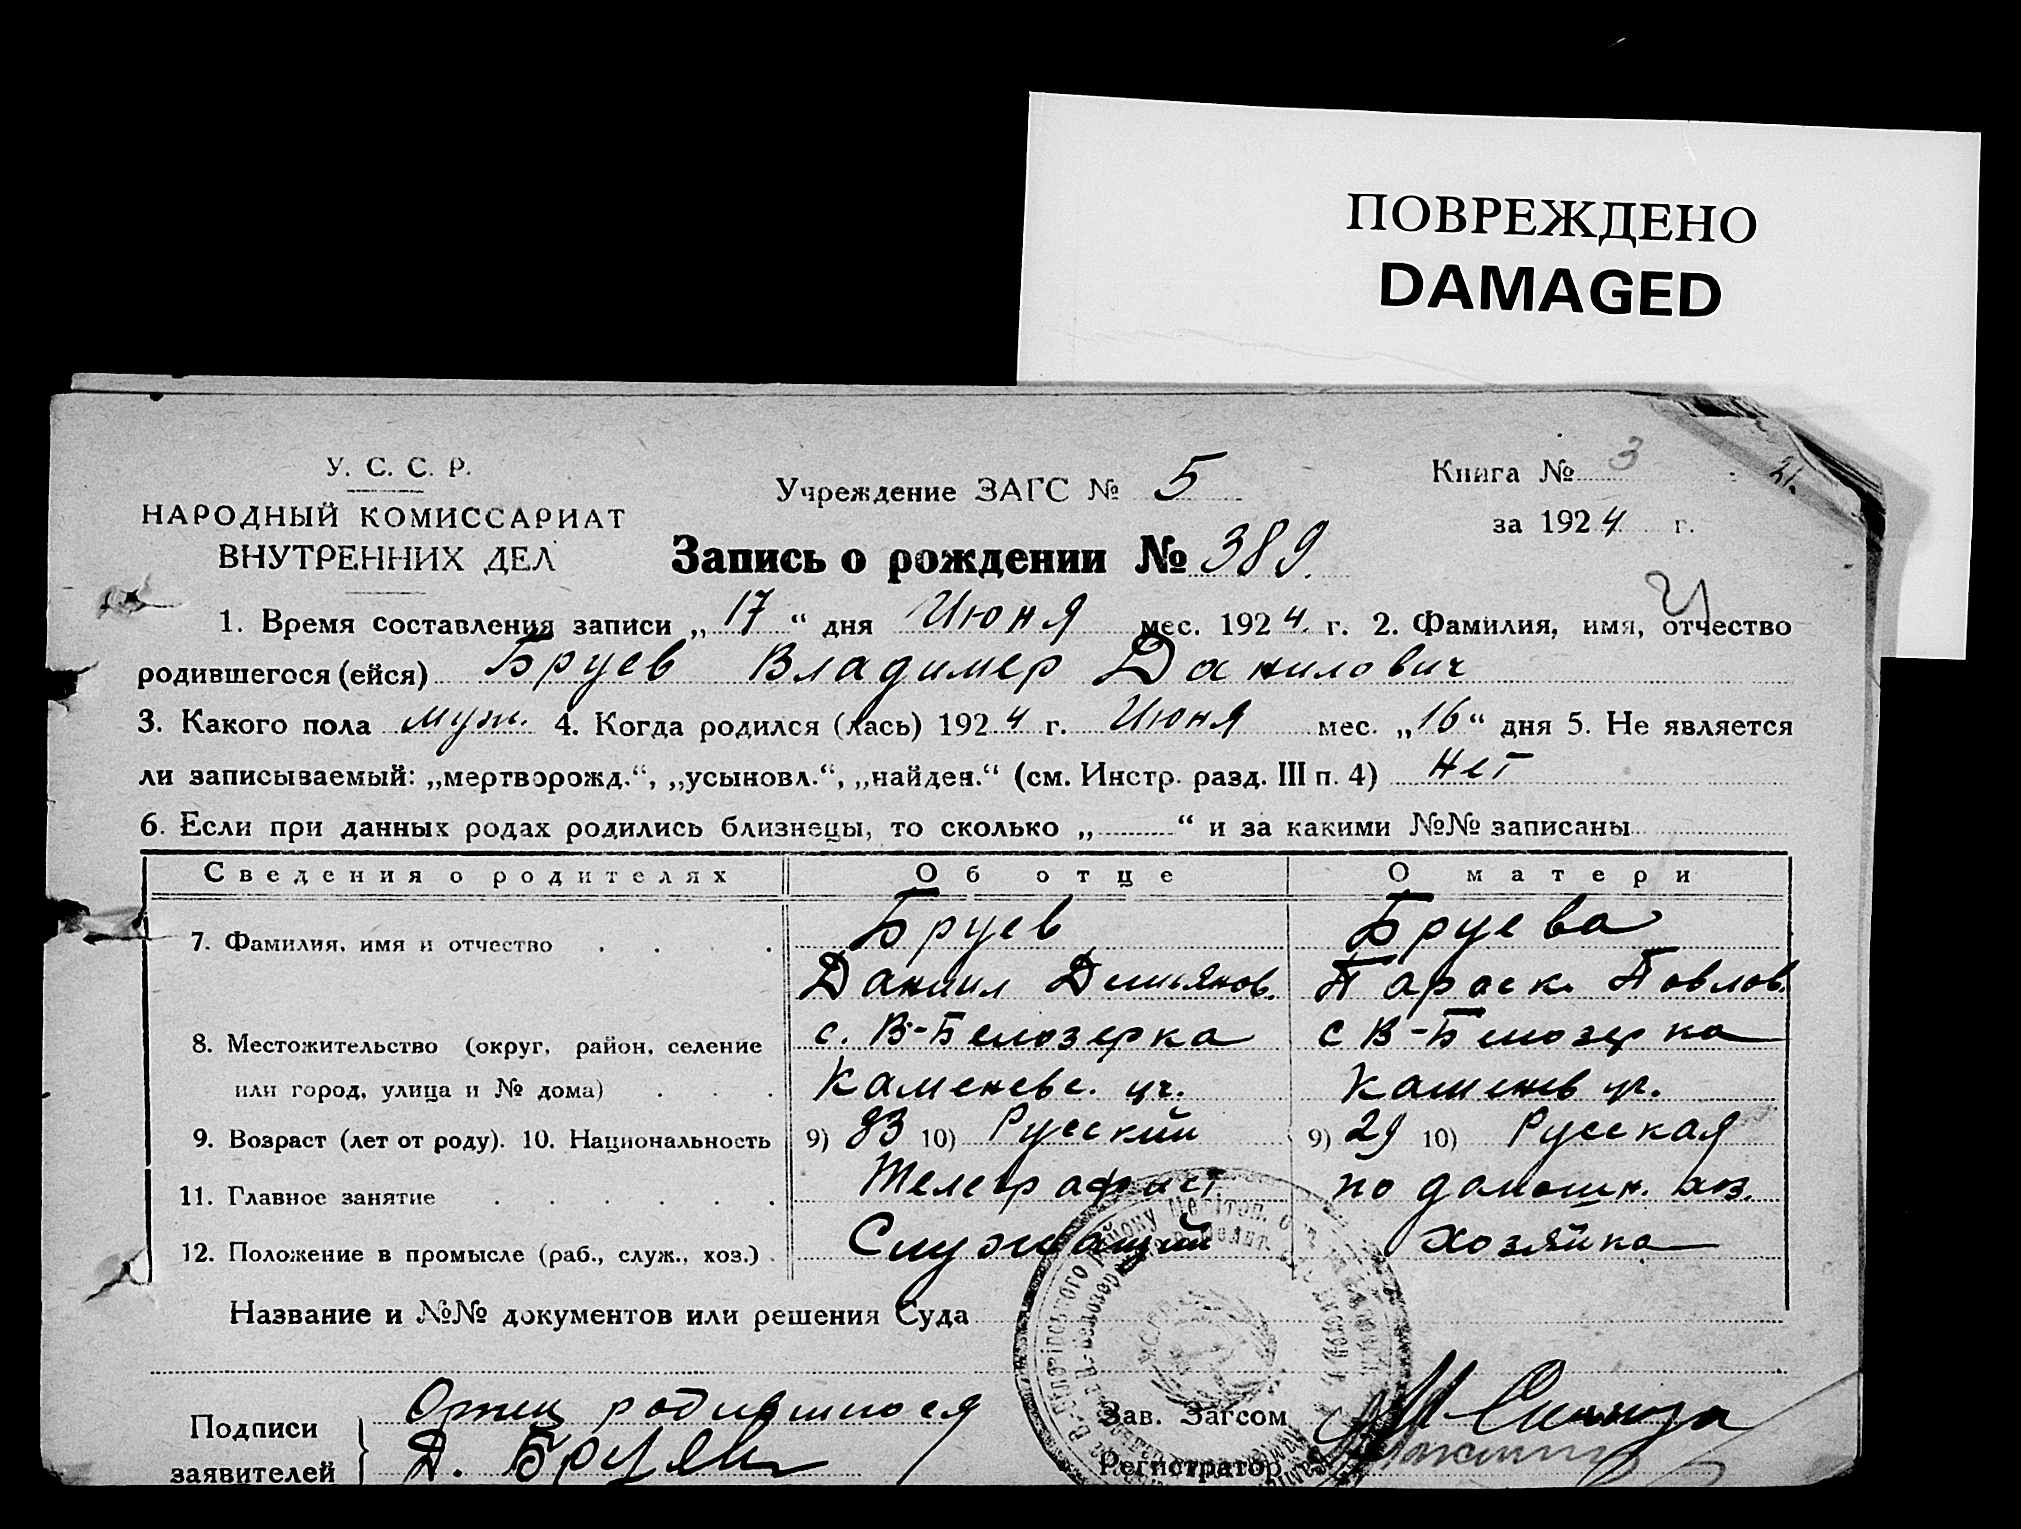 ПОВРЕЖДЕНО
DAMAGED
У. С. С. Р.
НАРОДНЫЙ КОМИССАРИАТ
ВНУТРЕННИХ ДЕЛ
Учреждение ЗАГС № 5
Книга № 3
за 1924 г.
Запись о рождении № 389.
1. Время составления записи „17“ дня Июня мес. 1924 г. 2. Фамилия, имя, отчество
родившегося (ейся) Бруев Владимер Данилович
3. Какого пола муж. 4. Когда родился (лась) 1924 г. Июня мес. „16“ дня 5. Не является
ли записываемый: „мертворожд.“, „усыновл.“, „найден.“ (см. Инстр. разд. III п. 4) нет
6. Если при данных родах родились близнецы, то сколько „ “ и за какими №№ записаны
Сведения о родителях Об отце О матери
7. Фамилия, имя и отчество Бруев Бруева
Даниил Демьянов. Параск. Павлов.
8. Местожительство (округ, район, селение с. В-Белозерка с В-Белозерка
или город, улица и № дома) Каменевс. уч. Каменев уч.
9. Возраст (лет от роду). 10. Национальность 9) 33 10) Русский 9) 29 10) Русская
11. Главное занятие Телеграфист по домашн. хоз.
12. Положение в промысле (раб., служ., хоз.) Служащий хозяйка
Название и №№ документов или решения Суда
Подписи
заявителей
Отец родившегося
Д. Бруев
Зав. Загсом
Регистратор